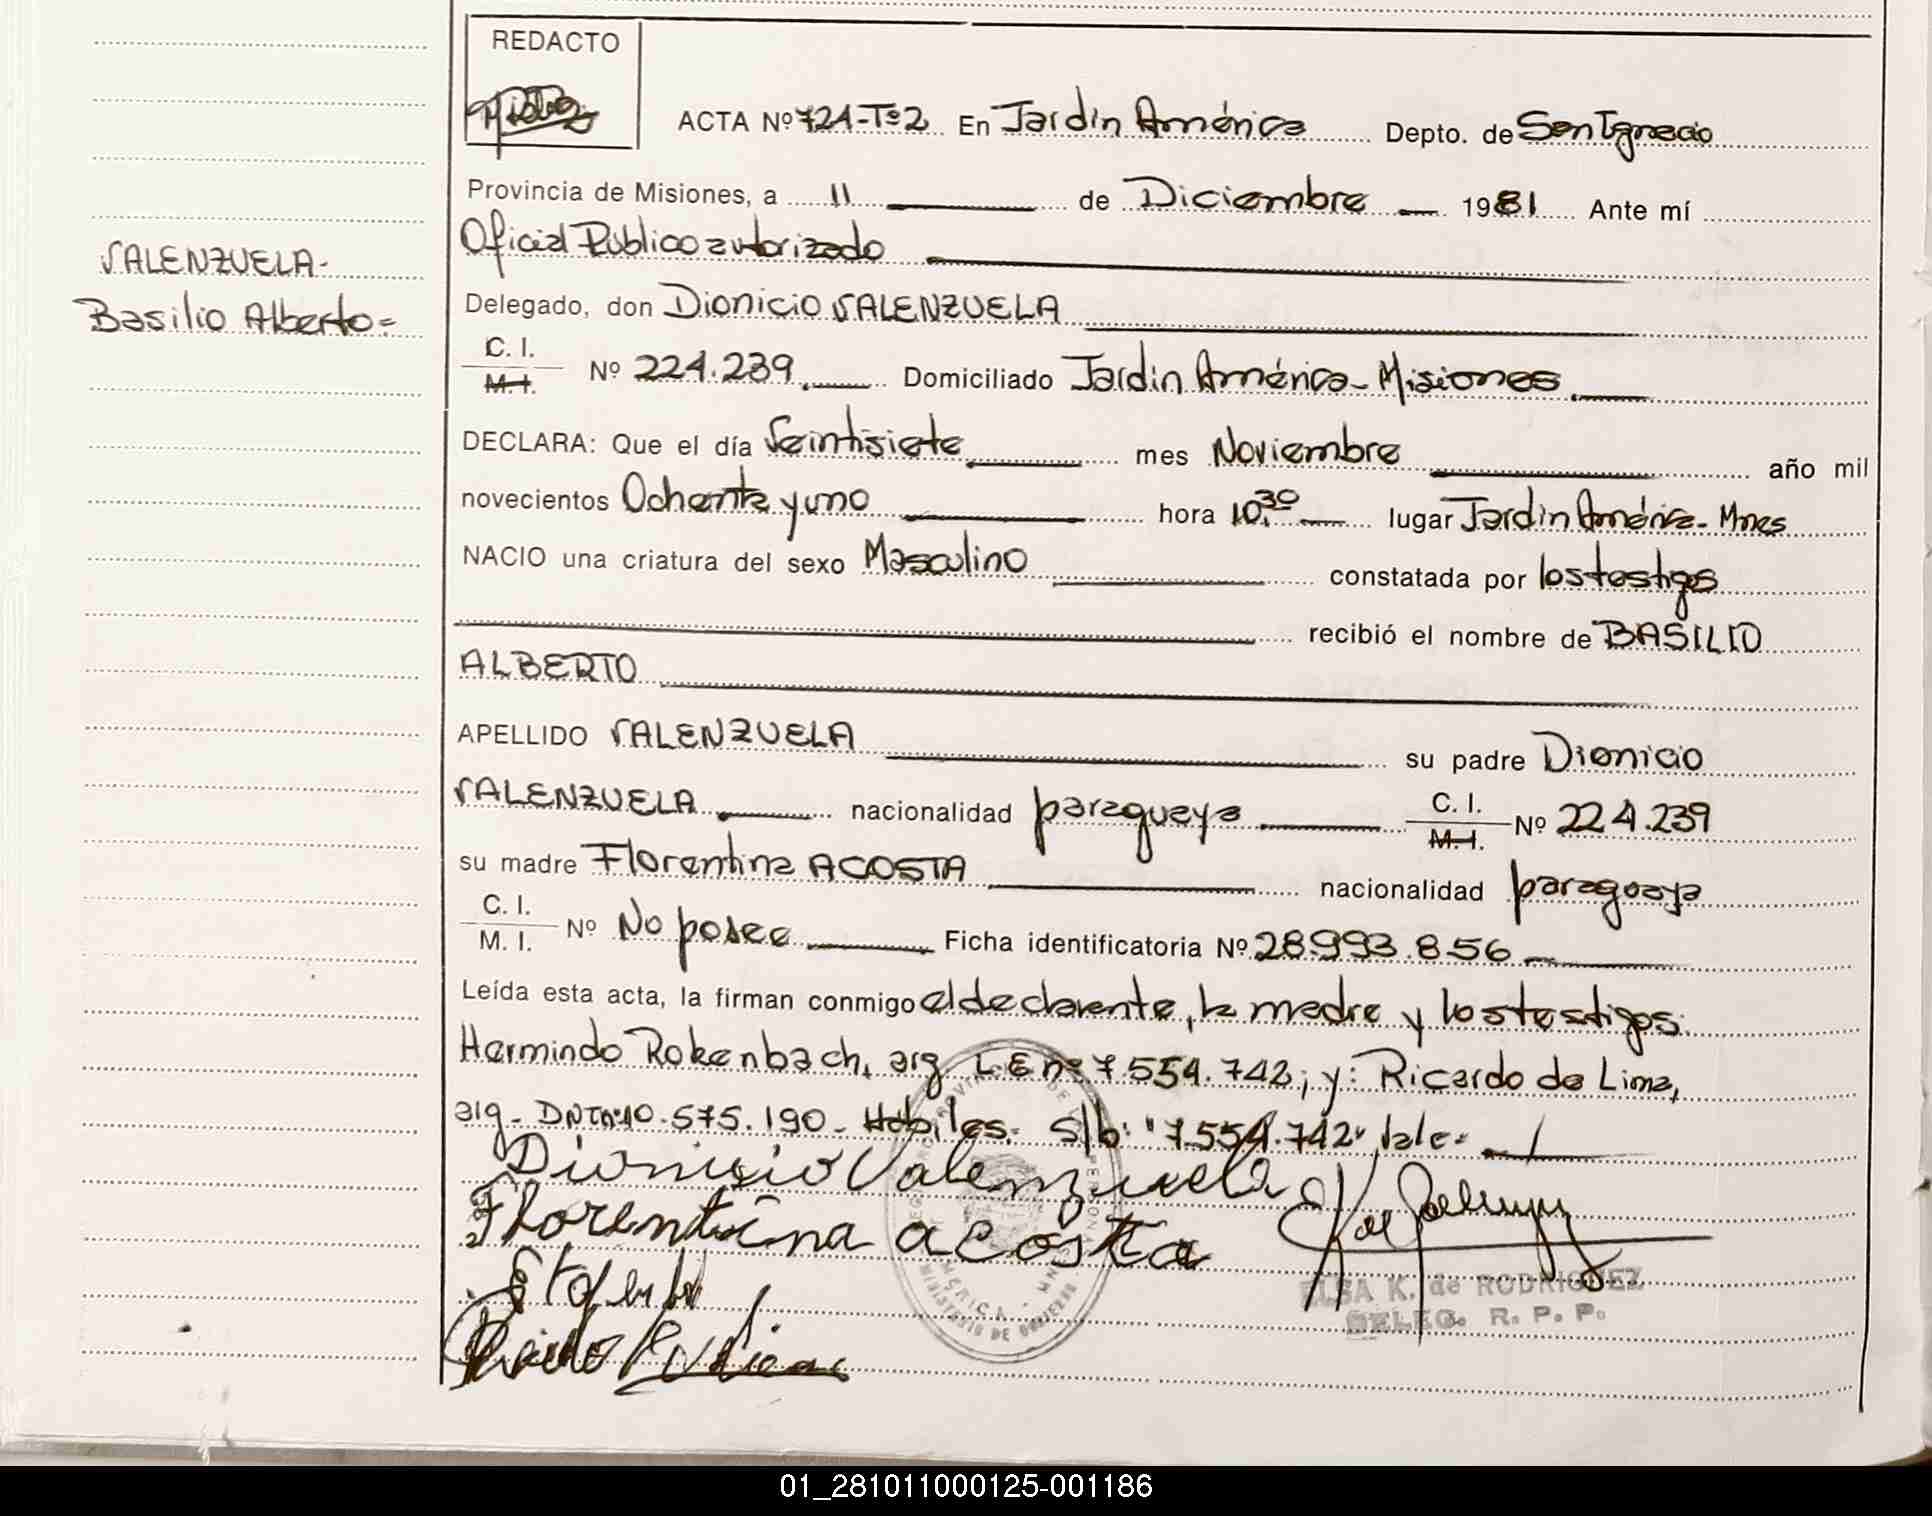 REDACTO
ACTA Nº 721-Tº2 En Jardin América Depto. de San Ignacio
Provincia de Misiones, a 11 de Diciembre 1981 Ante mí
Oficial Publico autorizado
VALENZUELA-
Basilio Alberto=
Delegado, don Dionicio VALENZUELA
C. I.
M. I.
Nº 224.239 Domiciliado Jardin América- Misiones
DECLARA: Que el día Veintisiete mes Noviembre año mil
novecientos Ochenta y uno hora 10,30 lugar Jardin América- Mnes
NACIO una criatura del sexo Masculino constatada por los testigos
recibió el nombre de BASILIO
ALBERTO
APELLIDO VALENZUELA su padre Dionicio
VALENZUELA nacionalidad paraguaya C. I. Nº 224.239
M. I.
su madre Florentina ACOSTA nacionalidad paraguaya
C. I.
M. I.
Nº No posee Ficha identificatoria Nº 28.993.856
Leída esta acta, la firman conmigo el declarante, la madre y los testigos:
Hermindo Rokenbach, arg LE nº 7.554.742; y: Ricardo de Lima,
arg- DNI nº 10.575.190- Hábiles. S/b: "7.554.742" Vale=
Dionicio Valenzuela
Florentina acosta
ELSA K. de RODRIGUEZ
DELEG. R. P. P.
01_281011000125-001186